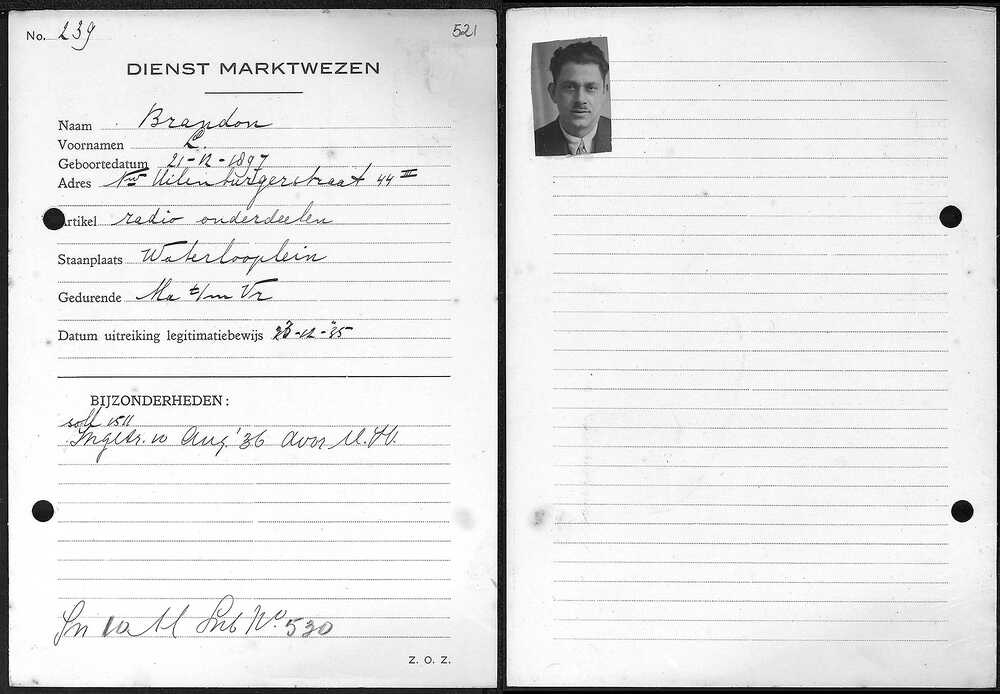 No. 239
521
DIENST MARKTWEZEN
Naam Brandon
Voornamen L.
Geboortedatum 21-12-1897
Adres Nw Uilenburgerstraat 44 III
Artikel radio onderdeelen
Staanplaats Waterlooplein
Gedurende Ma t/m Vr
Datum uitreiking legitimatiebewijs 23-12-'35
BIJZONDERHEDEN:
soll 1511
Ingetr. 10 Aug '36 door M.
No. 530
Z. O. Z.